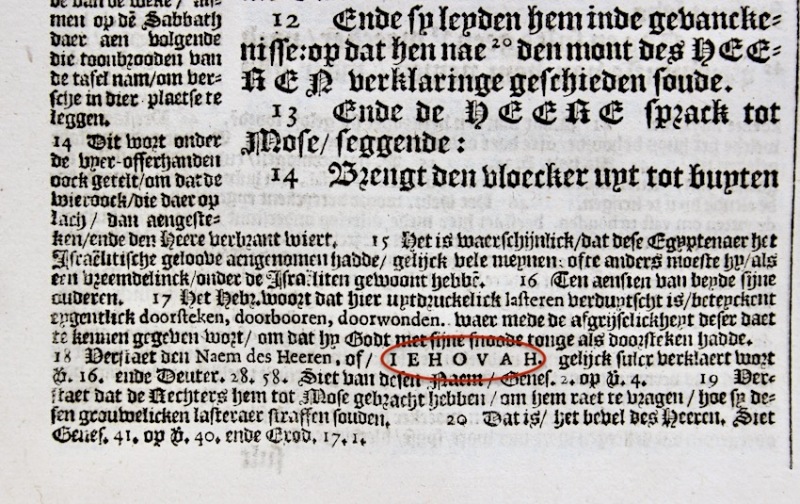 de van de weke / nt=
men op dẽ Sabbath
daer aen volgende
die toonbrooden van
de tafel nam/om ver=
sche in dier plaetse te
leggen.
14 Dit wort onder
de vyer-offerhanden
oock getelt/om dat de
wieroock/die daer op
lach / dan aengeste=
12 Ende sy leyden hem inde gevancke=
nisse: op dat hen nae 20 den mont des HEE=
REN verklaringe geschieden soude.
13 Ende de HEERE sprack tot
Mose/ seggende:
14 Brengt den vloecker uyt tot buyten
ken/ende den Heere verbrant wiert. 15 Het is waerschijnlick/dat dese Egyptenaer het
Israëlitische geloove aengenomen hadde/ gelijck vele meynen: ofte anders moeste hy/als
een vreemdelinck/onder de Israëliten gewoont hebbẽ. 16 Ten aensien van beyde sijne
ouderen. 17 Het Hebr. woort dat hier uytdruckelick lasteren verduytscht is/beteyckent
eygentlick doorsteken, doorbooren, doorwonden. waer mede de afgrijselickheyt deser daet
te kennen gegeven wort/ om dat hy Godt met sijne snoode tonge als doorsteken hadde.
18 Verstaet den Naem des Heeren, of/ IEHOVAH. gelijck sulcx verklaert wort
ꝟ. 16. ende Deuter. 28. 58. Siet van desen Naem/ Genes. 2. op ꝟ. 4. 19 Ver=
staet dat de Rechters hem tot Mose gebracht hebben/ om hem raet te vragen/ hoe sy de=
sen grouwelicken lasteraer straffen souden. 20 Dat is/ het bevel des Heeren. Siet
Genes. 41. op ꝟ. 40. ende Exod. 17. 1.